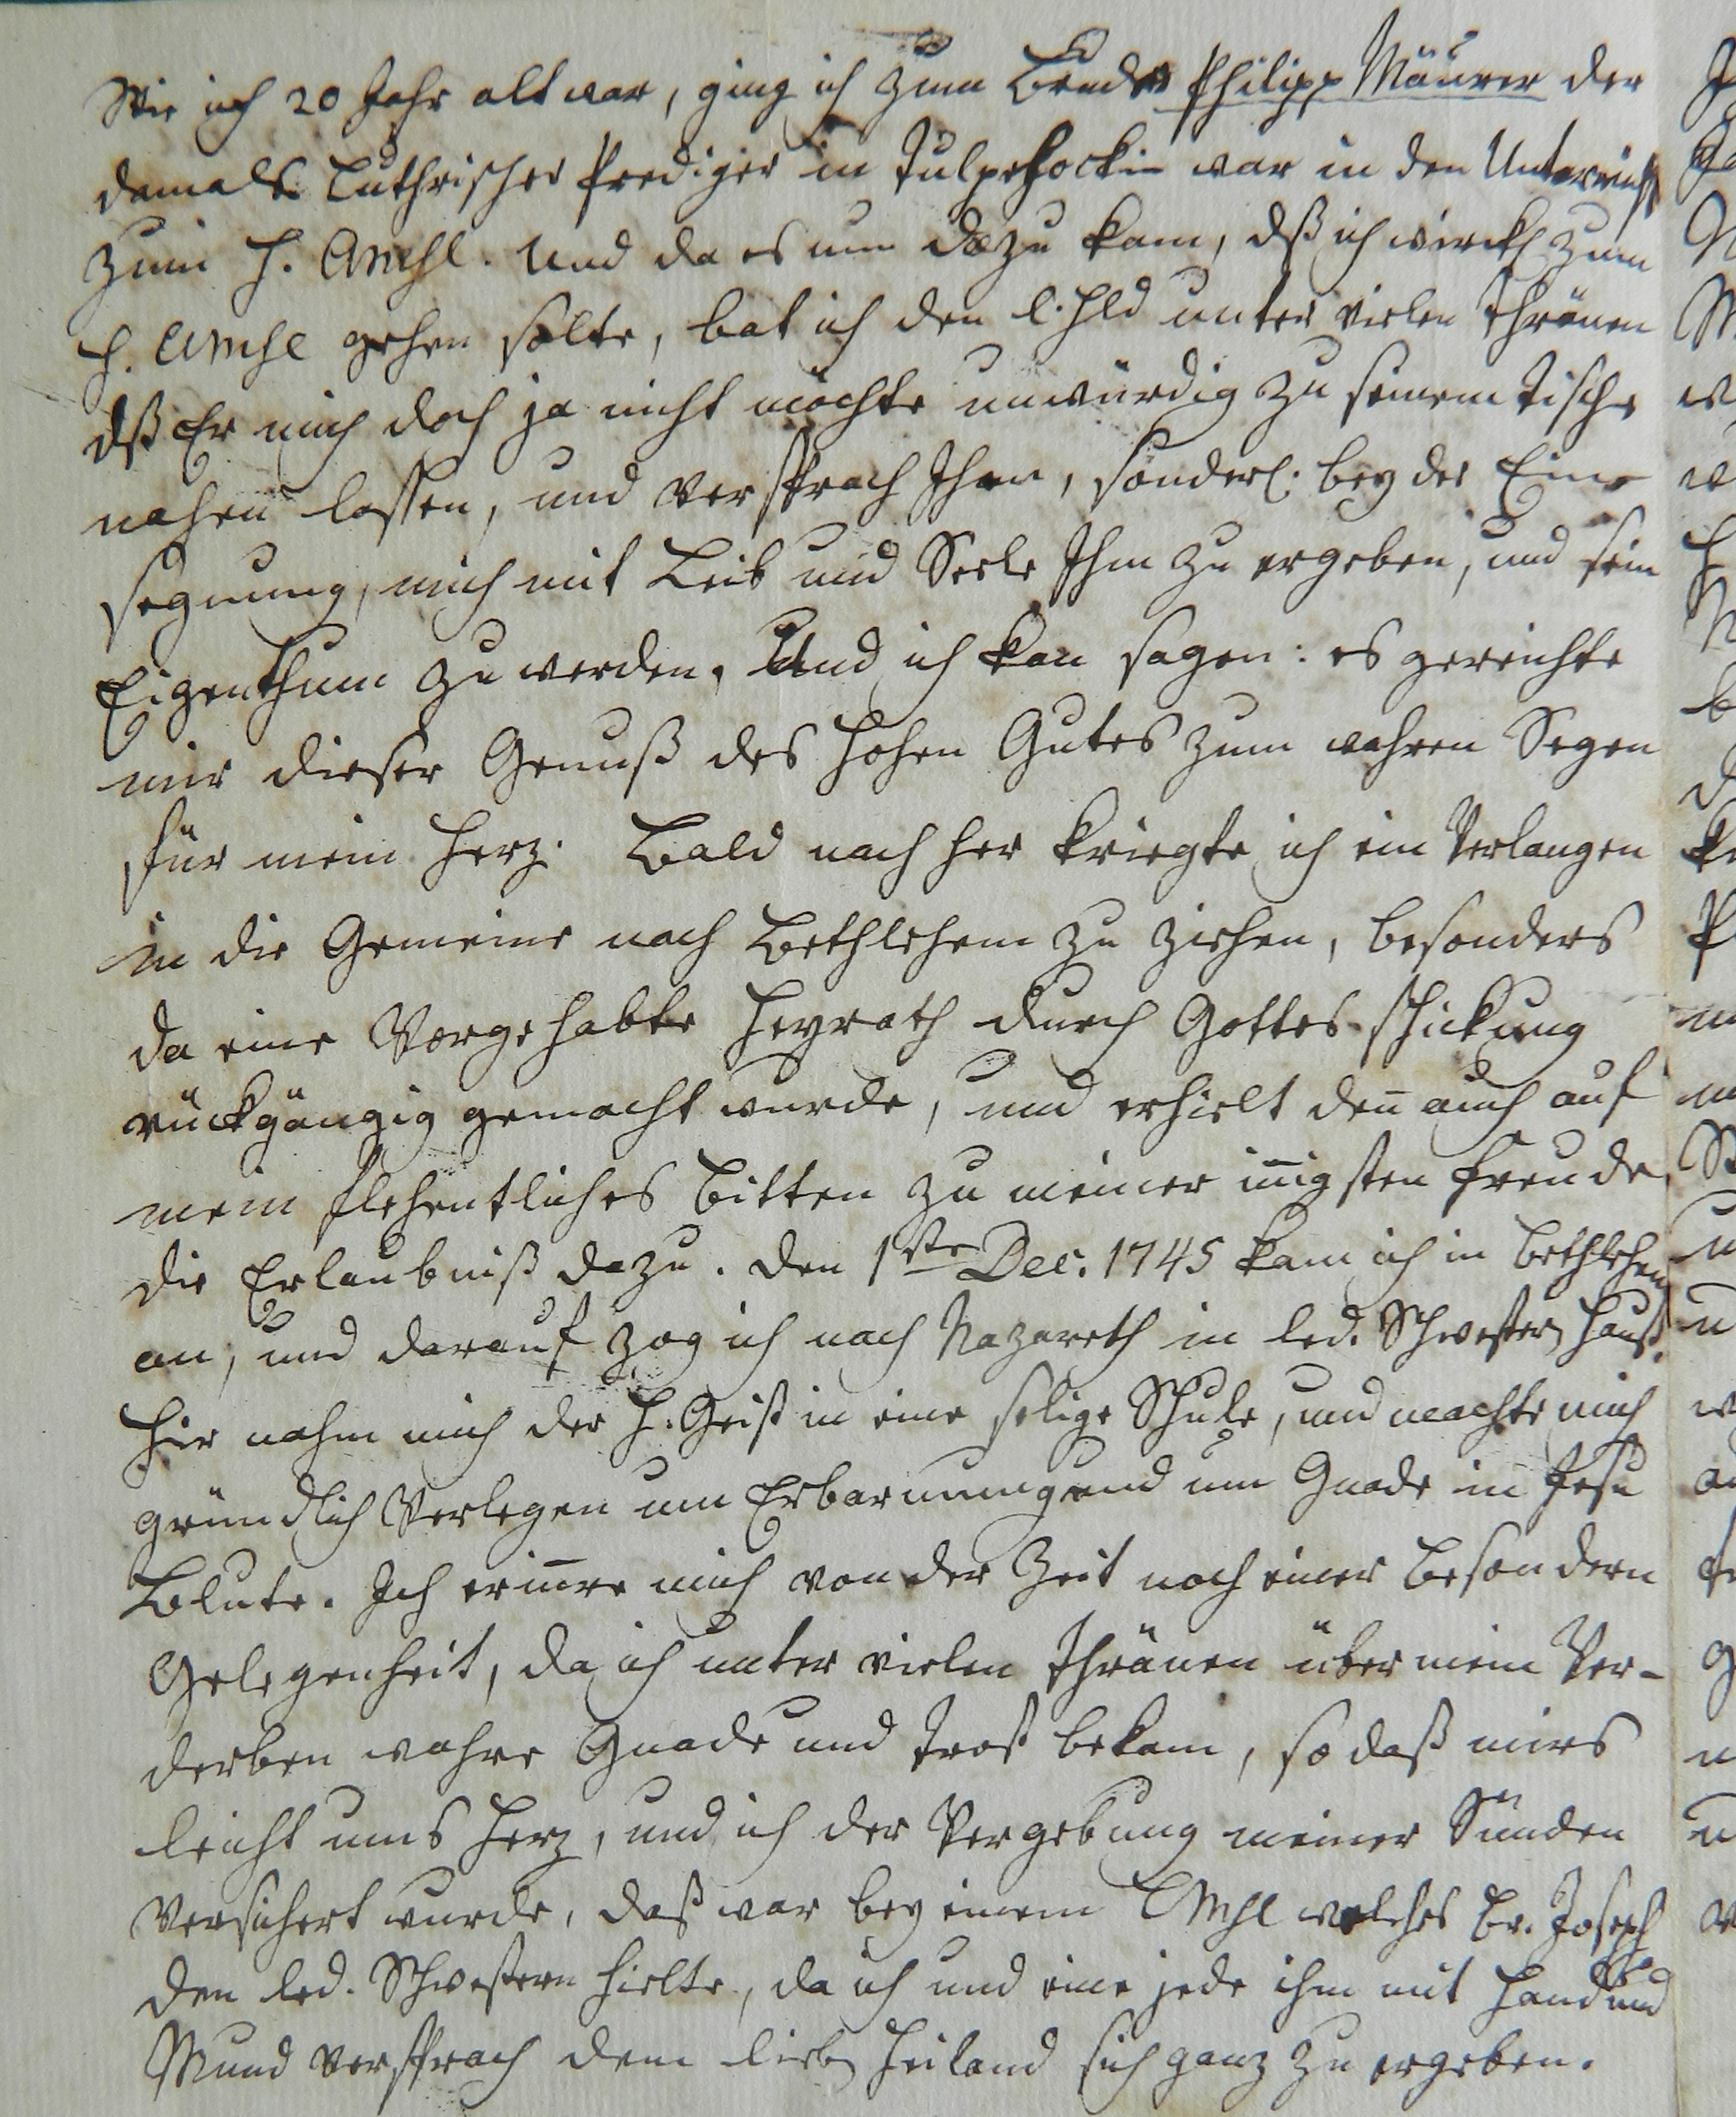 Wie ich 20 Jahr alt war, ging ich zum Bruder Philipp Mäurer der
damals Luthrischer Prediger in Tulpehockin war in den Unterricht
zum H. Amhl. Und da es nun dazu kam, dß ich wirckl zum
H. Amhl gehen solte, bat ich den l. Hld unter vielen Thränen
dß Er mich doch ja nicht möchte unwürdig zu seinem Tische
nahen lassen, und versprach Ihm, sonderl. bey der Ein-
segnung, mich mit Leib und Seele Ihm zu ergeben, und sein
Eigenthum zu werden. Und ich kan sagen: es gereichte
mir dieser Genuß des hohen Gutes zum wahren Segen
für mein Herz. Bald nach her kriegte ich ein Verlangen
in die Gemeine nach Bethlehem zu ziehen, besonders
da eine Vorgehabte Heyrath durch Gottes Schickung
rückgängig gemacht wurde, und erhielt den̄ auch auf
mein flehentliches Bitten zu meiner in̄igsten Freude,
die Erlaubniß dazu. Den 1ste Dec. 1745 kam ich in Bethlehem
an, und darauf zog ich nach Nazareth in led. Schwestern Hauß.
Hier nahm mich der H. Geist in eine selige Schule, und machte mich
gründlich Verlegen um Erbarmung und um Gnade in Jesu
Blute. Ich erin̄re mich von der Zeit noch einer besondern
Gelegenheit, da ich unter vielen Thränen über mein Ver-
derben wahre Gnade und Trost bekam, so daß mirs
leicht ums Herz, und ich der Vergebung meiner Sünden
versichert wurde, daß war bey einem Amhl welches Br. Joseph
den led. Schwestern hielte, da ich und eine jede ihm mit Hand und
Mund versprach dem lieben Heiland sich ganz zu ergeben.